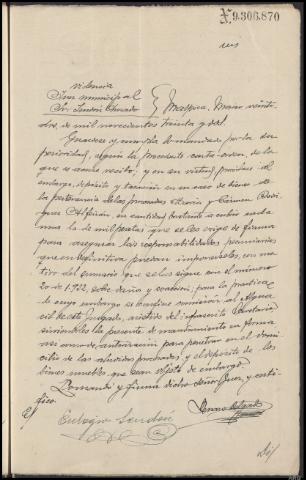 N.9.306.870
Providencia
Juez municipal
Sr. Sendón
Malpica, Mayo veinti-
dos, de mil novecientos treinta y dos.
Guárdese y cumpla lo mandado por la su
perioridad, según la precedente carta-orden, de la
que se acuse recibo; y en su virtud, procédase al
embargo, depósito y tasación en su caso de bienes de
la pertenencia de las procesadas María y Carmen Rodrí
guez Alfeirán, en cantidad bastante a cubrir cada
una la de mil pesetas que se les exige de fianza
para asegurar las responsabilidades pecuniarias
que en definitiva puedan imponérseles, con mo-
tivo del sumario que se les sigue con el número
20 de 1.932, sobre daño y coacción; para la práctica
de cuyo embargo se confiere comisión al Alguacil
de este Juzgado, asistido del infrascrito Secretario
sirviéndoles la presente de mandamiento en forma
así como de autorización para penetrar en el domi-
cilio de las aludidas procesadas, y el depósito de los
bienes muebles que sean objeto de embargo.
Lo mandó y firma dicho Señor Juez, y certi-
fico.
Eulogio Sendón